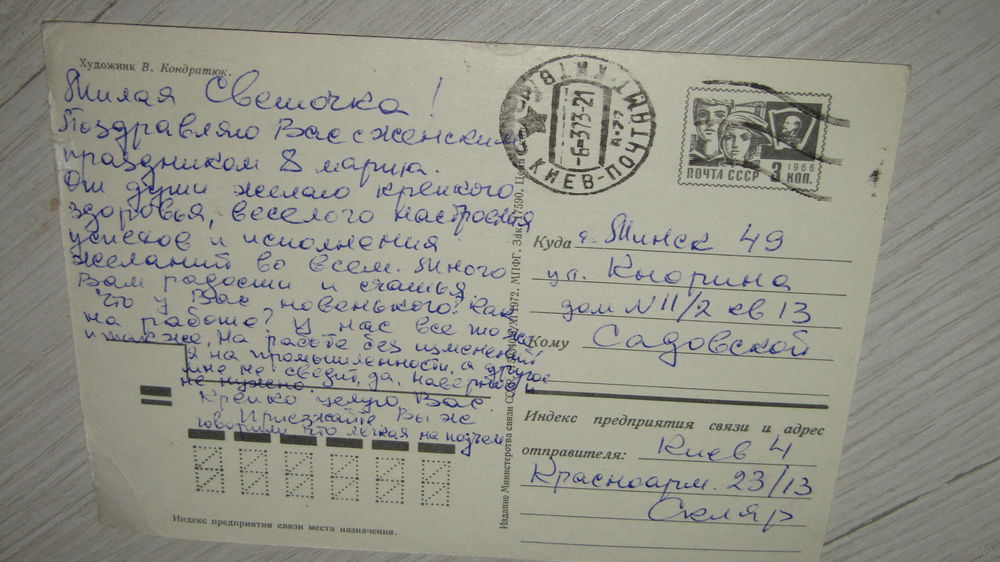 Художник В. Кондратюк.
Милая Светочка!
Поздравляю Вас с женским
праздником 8 марта.
От души желаю крепкого
здоровья, веселого настроения
успехов и исполнения
желаний во всем. Много
Вам радости и счастья.
Что у Вас новенького? Как
на работе? У нас все то же
и так же. На работе без изменений
Я на промышленности, а другое
мне не светит, да, наверное и
не нужно.
Крепко целую Вас.
Приезжайте, Вы же
говорили что легкая на подъем
Индекс предприятия связи места назначения.
Издание Министерства связи СССР. 1972. МПФГ. Зак. 17590. Цена
КИЕВ-ПОЧТАМТ
-6-373-21
ПОЧТА СССР
1966
3 КОП.
Куда г. Минск 49
ул. Кнорина
дом N 11/2 кв 13
Кому Садовской
Индекс предприятия связи и адрес
отправителя: Киев 4
Красноарм. 23/13
Скляр